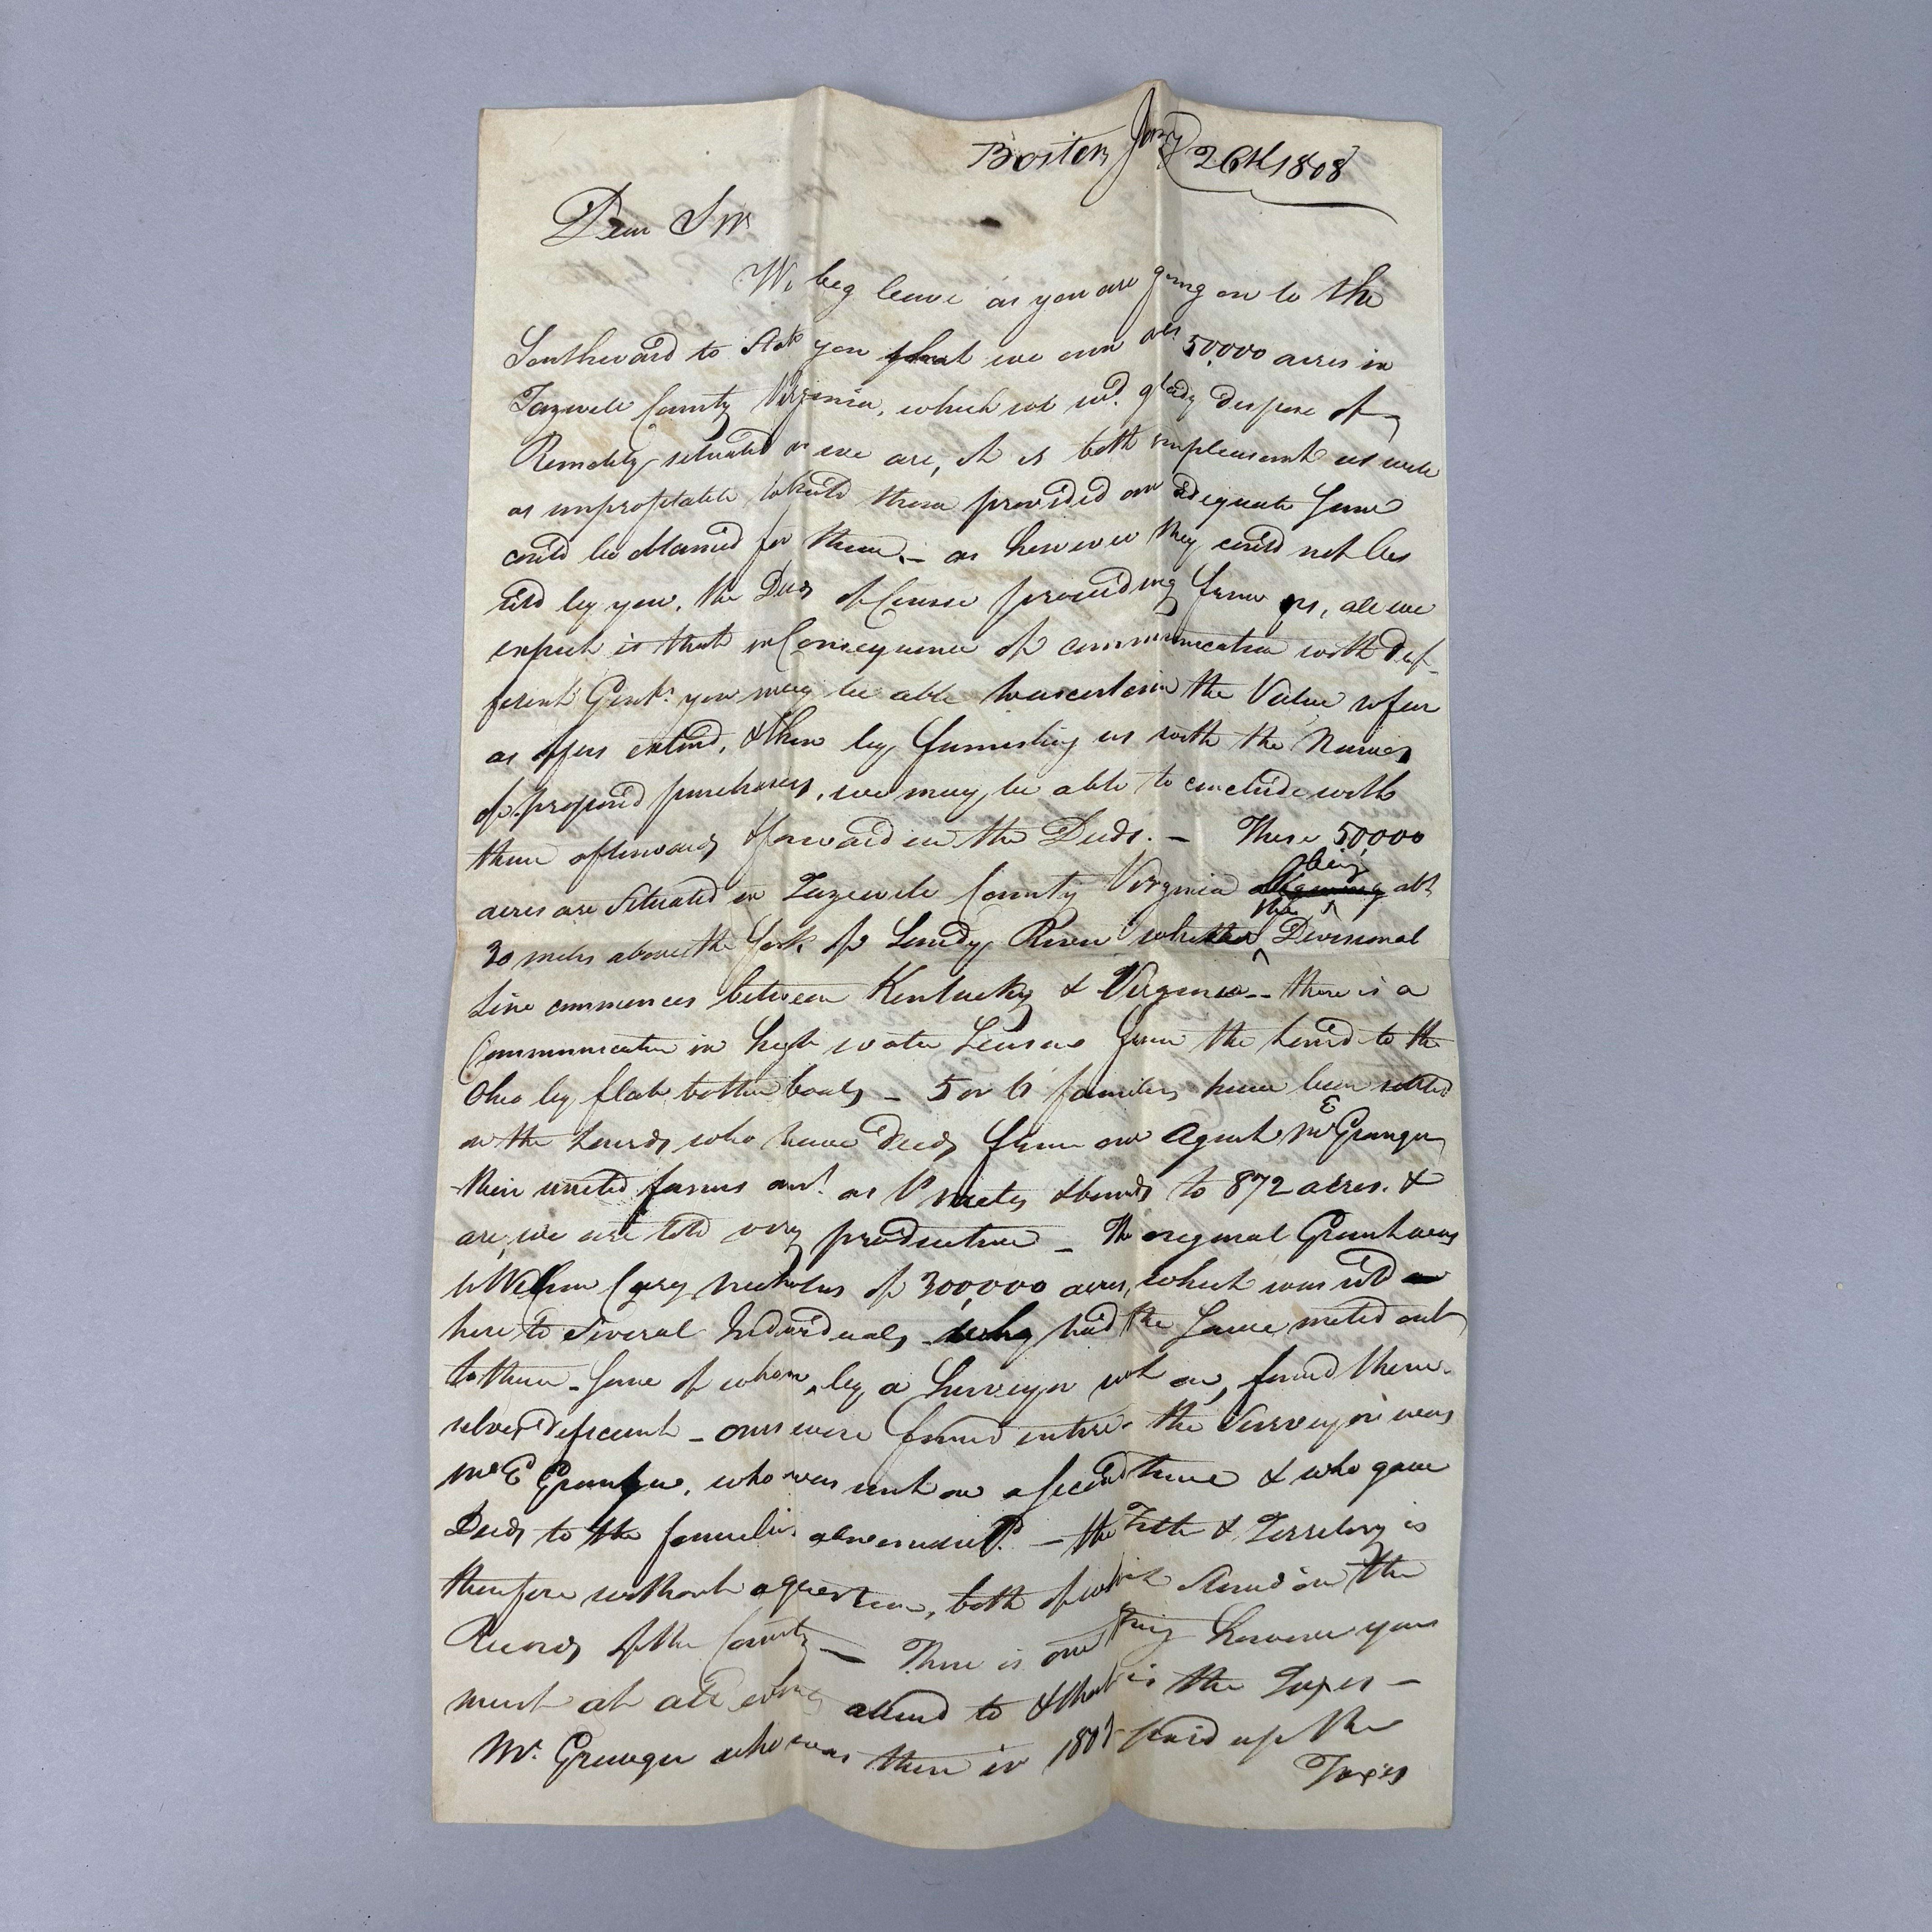 Boston Jany 26th 1808
Dear Sir
We beg leave as you are going on to the
Southward to State to you that we own abt 50,000 acres in
Tazewell County Virginia, which we wd. gladly dispose of
Remotely situated as we are, it is both unpleasant as well
as unprofitable to hold them provided an adequate sum
could be obtained for them. – as however they could not be
sold by you, the Deeds of Course proceeding from us, all we
expect is that in Consequence of communication with dif-
ferent Gentn. you may be able to ascertain the Value so far
as offers extend, & then by furnishing us with the Names
of proposed purchasers, we may be able to conclude with
them afterwards & forward on the Deeds. – These 50,000
acres are Situated in Tazewell County Virginia being abt
30 miles above the fork of Sandy River where the Divisional
Line commences between Kentucky & Virginia – there is a
Communication in high water Seasons from the Land to the
Ohio by flat bottom boats – 5 or 6 families have been settled
on the Lands who have Deeds from our Agent Mr E Granger
their united farms amt. as by metes & bounds to 872 acres. &
are, we are told very productive – The original Grant was
to Wilson Cary Nicholas of 300,000 acres, which was sold
here to Several Individuals who had the Same meted out
to them – Some of whom, by a Surveyor sent on, found them-
selves deficient – ours were found entire – the Surveyor was
Mr E Granger, who was sent on a second time & who gave
Deeds to the families abovementd. – the Title & Territory is
therefore without a question, both of which stand on the
Records of the County – There is one thing however you
must at all events attend to & that is the Taxes –
Mr. Granger who was there in paid up the
Taxes